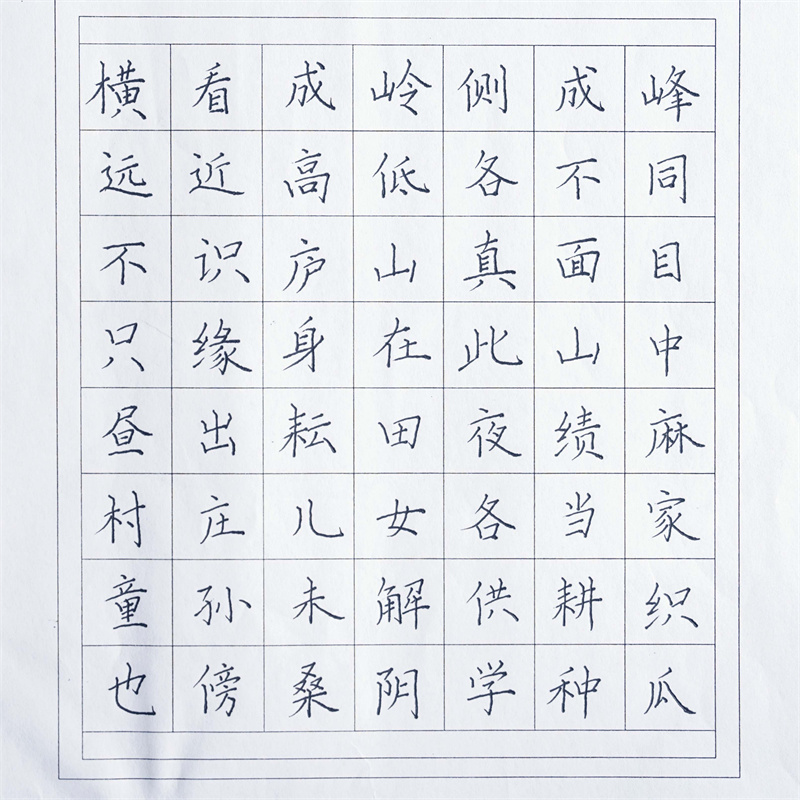 横看成岭侧成峰
远近高低各不同
不识庐山真面目
只缘身在此山中
昼出耘田夜绩麻
村庄儿女各当家
童孙未解供耕织
也傍桑阴学种瓜